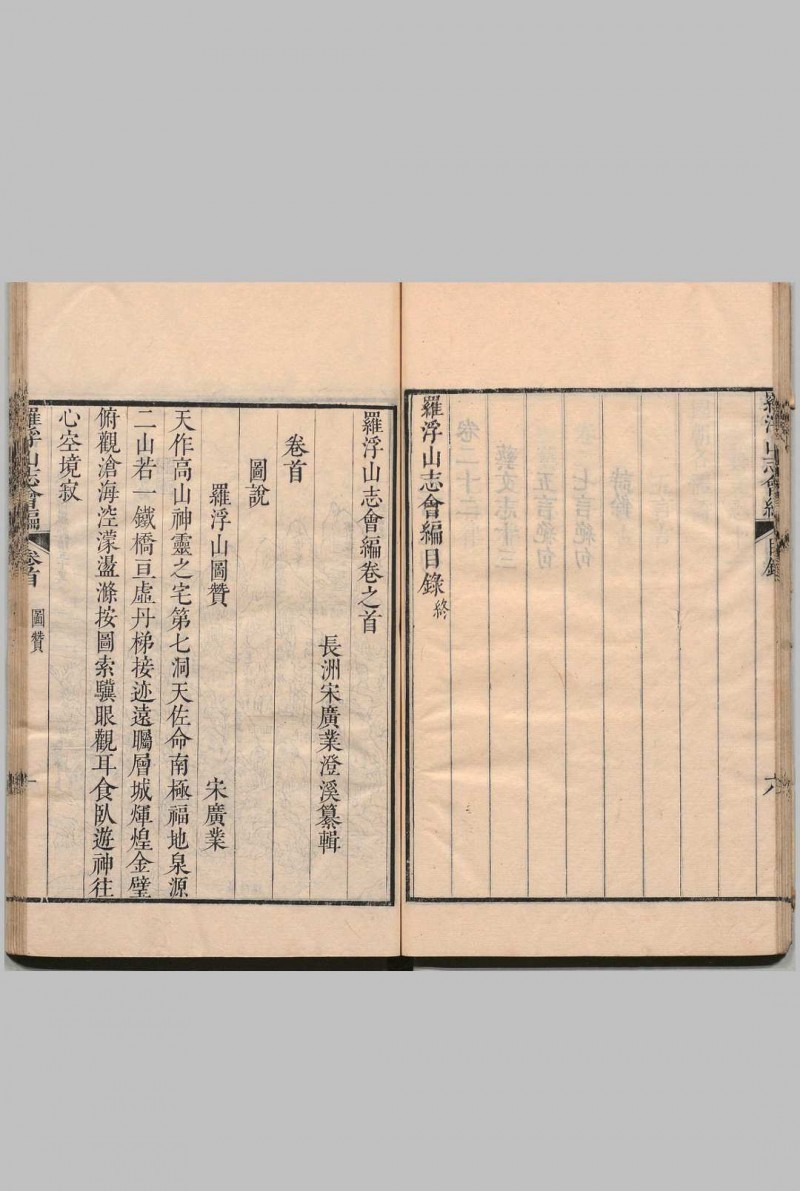 羅浮山志會編
目錄
六
羅浮山志會編目錄終
羅浮山志會編卷之首
長洲宋廣業澄溪纂輯
卷首
圖說
羅浮山圖贊
宋廣業
天作高山神靈之宅第七洞天佐命南極福地泉源
二山若一鐵橋亘虛丹梯接迹遠矚層城煇煌金璧
俯觀滄海涳濛盪潏按圖索驥眼觀耳食臥遊神往
心空境寂
羅浮山志會編
卷首
圖贊
一